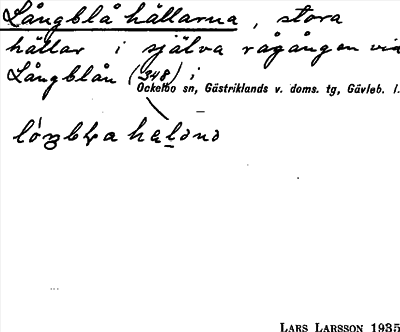 Långblå hällarna, stora
hällar i själva rågången vid
Långblån (348) i
Ockelbo sn, Gästriklands v. doms. tg, Gävleb. l.
LARS LARSSON 1935